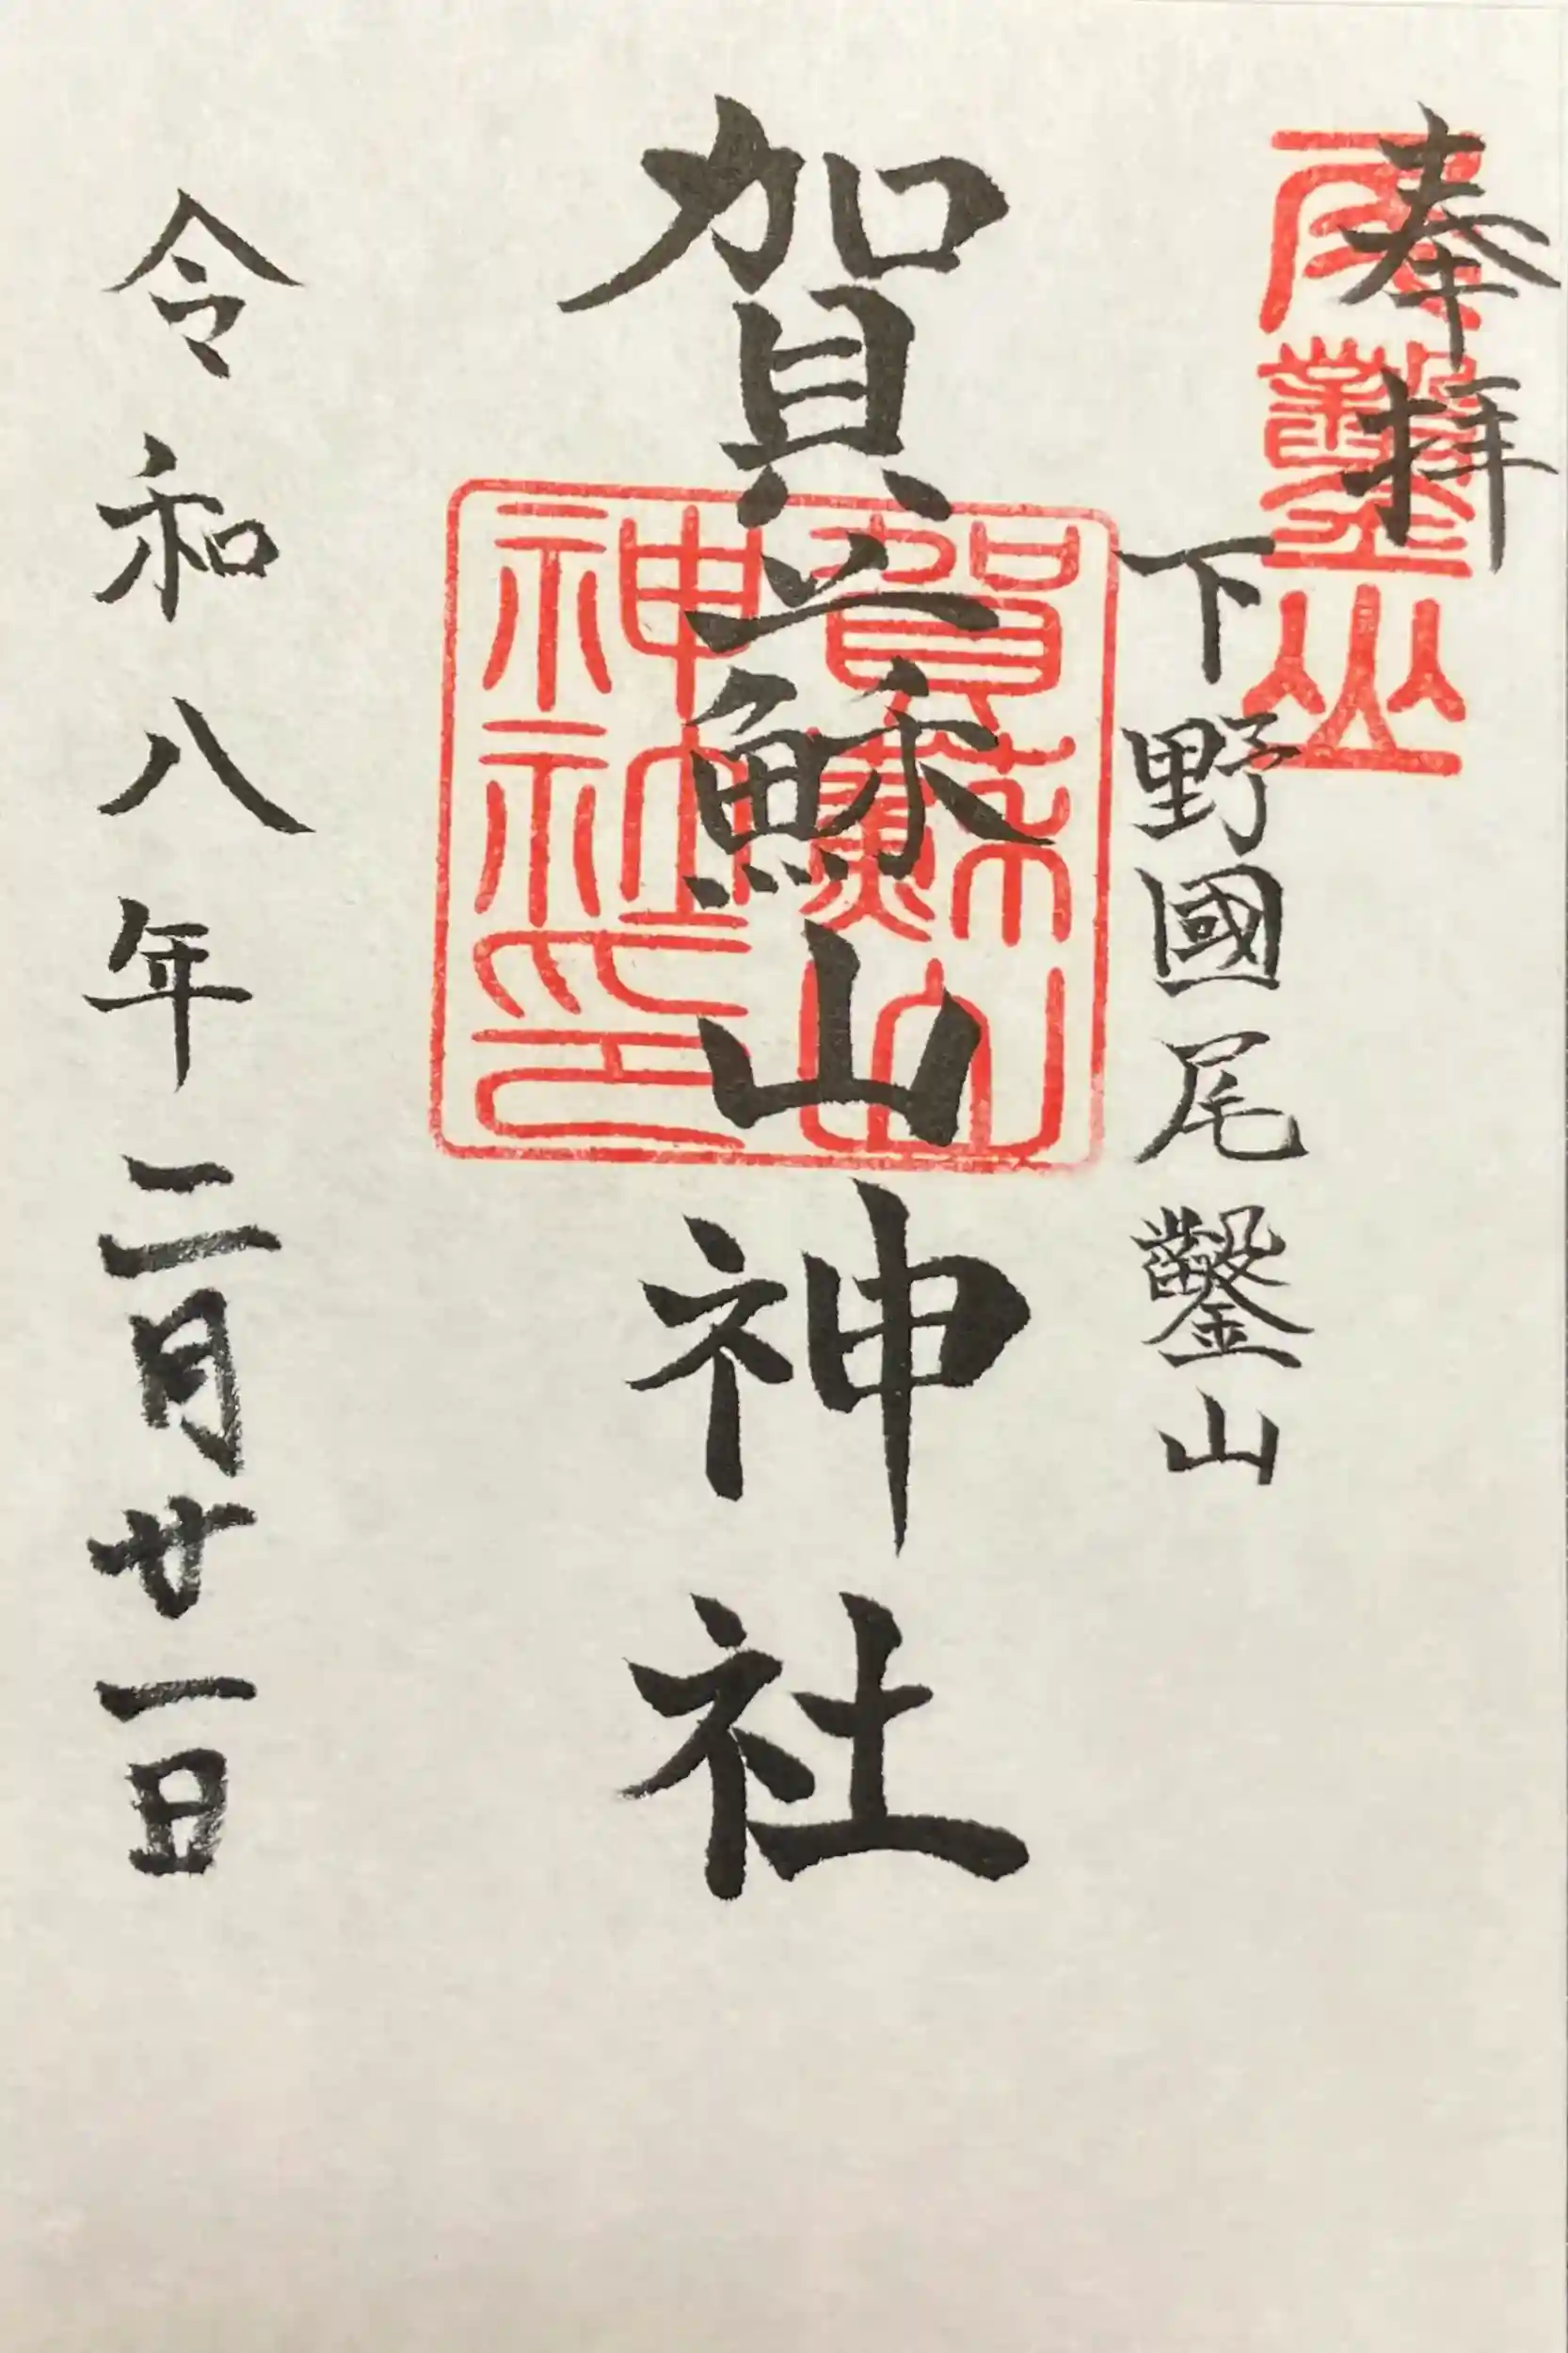 奉拝
下野國尾鑿山
賀蘓山神社
令和八年二月廿一日
尾鑿山
賀蘓山神社印